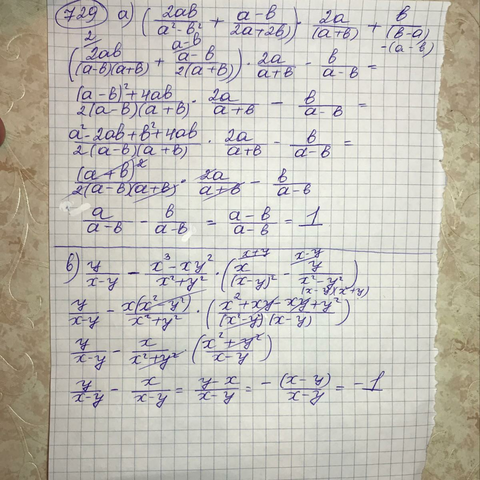 729 а) (2ab/(a²-b²) + (a-b)/(2a+2b)) · 2a/(a+b) + b/(b-a)
-(a-b)
(2ab/((a-b)(a+b)) + (a-b)/(2(a+b))) · 2a/(a+b) - b/(a-b) =
((a-b)²+4ab)/(2(a-b)(a+b)) · 2a/(a+b) - b/(a-b) =
(a²-2ab+b²+4ab)/(2(a-b)(a+b)) · 2a/(a+b) - b/(a-b) =
(a+b)²/(2(a-b)(a+b)) · 2a/(a+b) - b/(a-b)
a/(a-b) - b/(a-b) = (a-b)/(a-b) = 1
в) y/(x-y) - (x³-xy²)/(x²+y²) · (x/(x-y)² - y/(x²-y²))
y/(x-y) - x(x²-y²)/(x²+y²) · ((x²+xy-xy+y²)/((x²-y²)(x-y)))
y/(x-y) - x/(x²+y²) · ((x²+y²)/(x-y))
y/(x-y) - x/(x-y) = (y-x)/(x-y) = -(x-y)/(x-y) = -1